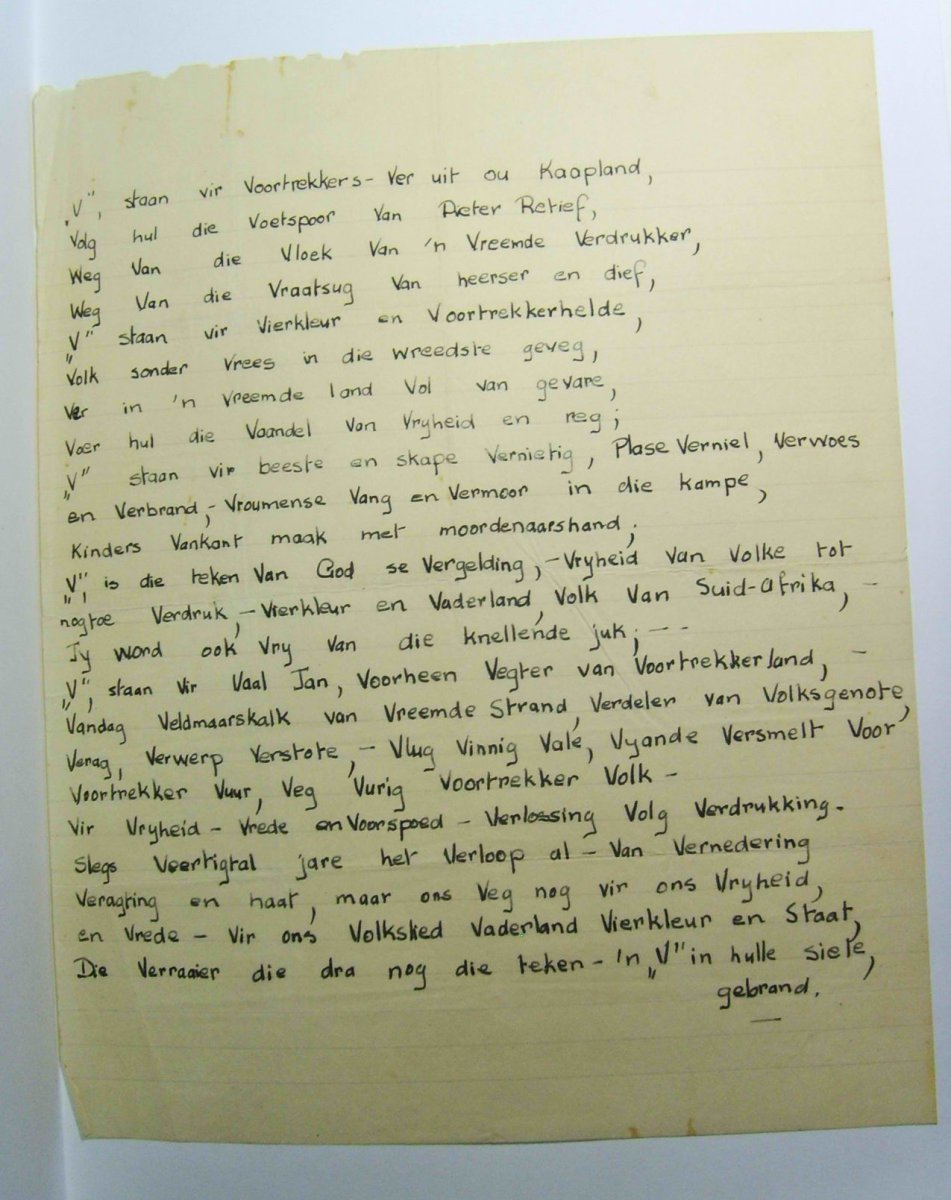 „V", staan vir Voortrekkers - Ver uit ou Kaapland,
Volg hul die Voetspoor Van Pieter Retief,
Weg Van die Vloek Van 'n Vreemde Verdrukker,
Weg Van die Vraatsug Van heerser en dief,
„V" staan vir Vierkleur en Voortrekkerhelde,
Volk sonder Vrees in die wreedste geveg,
Ver in 'n Vreemde land Vol van gevare,
Voer hul die Vaandel Van Vryheid en reg;
„V" staan vir beeste en skape Vernietig, Plase Verniel, Verwoes
en Verbrand, - Vroumense Vang en Vermoor in die kampe,
Kinders Vankant maak met moordenaarshand;
„V", is die teken Van God se Vergelding, - Vryheid Van Volke tot
nogtoe Verdruk, - Vierkleur en Vaderland, Volk Van Suid-Afrika, -
Jy word ook Vry Van die knellende juk; - -
„V", staan vir Vaal Jan, Voorheen Vegter van Voortrekkerland, -
Vandag Veldmaarskalk van Vreemde Strand, Verdeler van Volksgenote,
Verag, Verwerp Verstote, - Vlug Vinnig Vale, Vyande Versmelt Voor
Voortrekker Vuur, Veg Vurig Voortrekker Volk -
Vir Vryheid - Vrede en Voorspoed - Verlossing Volg Verdrukking.
Slegs Veertigtal jare het Verloop al - Van Vernedering
Veragting en haat, maar ons Veg nog vir ons Vryheid,
en Vrede - Vir ons Volkslied Vaderland Vierkleur en Staat,
Die Verraaier die dra nog die teken - 'n „V" in hulle siele,
gebrand.